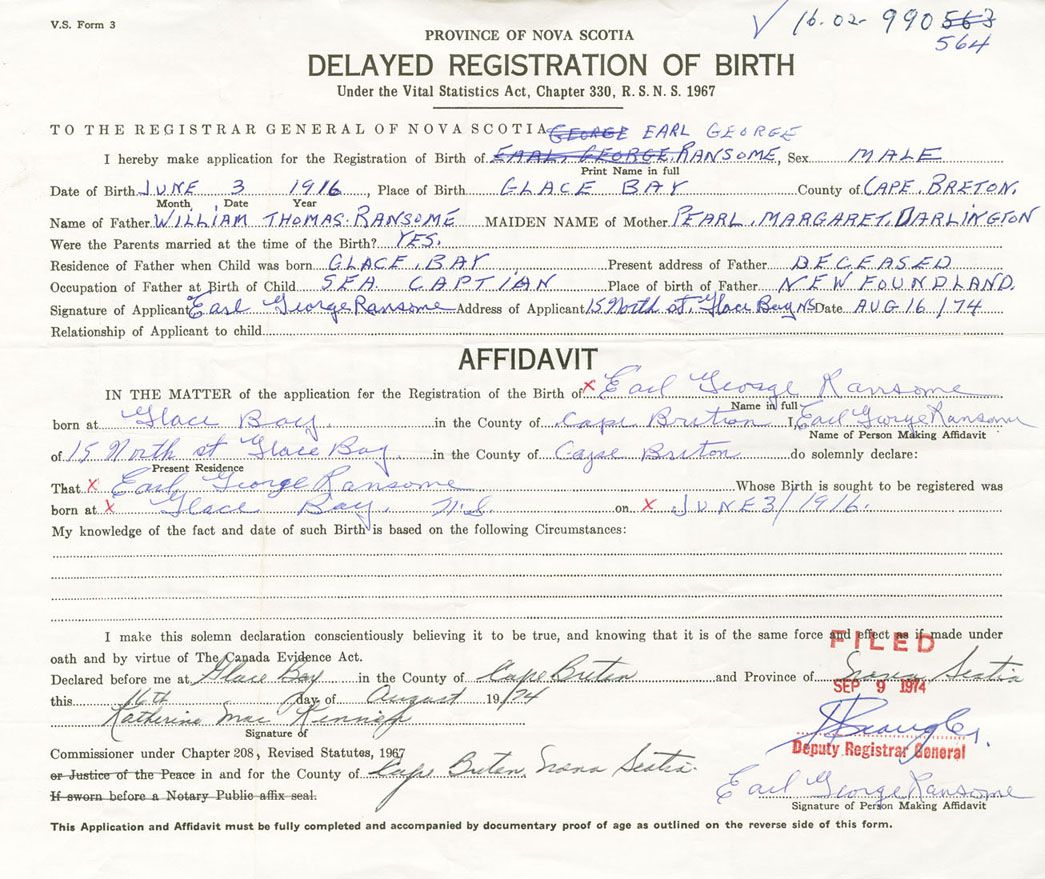 V.S. Form 3
✓ 16-02- 990 563
564
PROVINCE OF NOVA SCOTIA
DELAYED REGISTRATION OF BIRTH
Under the Vital Statistics Act, Chapter 330, R. S. N. S. 1967
TO THE REGISTRAR GENERAL OF NOVA SCOTIA GEORGE EARL GEORGE
I hereby make application for the Registration of Birth of EARL. GEORGE. RANSOME, Sex MALE
Print Name in full
Date of Birth JUNE 3 1916, Place of Birth GLACE BAY County of CAPE. BRETON.
Month, Date Year
Name of Father WILLIAM THOMAS. RANSOME MAIDEN NAME of Mother PEARL. MARGARET. DARLINGTON
Were the Parents married at the time of the Birth? YES.
Residence of Father when Child was born GLACE. BAY Present address of Father DECEASED
Occupation of Father at Birth of Child SEA. CAPTIAN Place of birth of Father NEW FOUNDLAND.
Signature of Applicant Earl George Ransome Address of Applicant 15 North st. Glace Bay NS Date AUG 16/74
Relationship of Applicant to child
AFFIDAVIT
IN THE MATTER of the application for the Registration of the Birth of x Earl George Ransome
Name in full
born at Glace Bay. in the County of Cape Brition I, Earl George Ransome
Name of Person Making Affidavit
of 15 North st Glace Bay. in the County of Cape Briton do solemnly declare:
Present Residence
That x Earl George Ransome Whose Birth is sought to be registered was
born at x Glace Bay. N.S. on x JUNE 3/1916.
My knowledge of the fact and date of such Birth is based on the following Circumstances:
I make this solemn declaration conscientiously believing it to be true, and knowing that it is of the same force and effect as if made under
FILED
oath and by virtue of The Canada Evidence Act.
Declared before me at Glace Bay in the County of Cape Breton and Province of Nova Scotia
SEP 9 1974
this 16th day of August 19/74
Katherine Mac
Signature of
Deputy Registrar General
Commissioner under Chapter 208, Revised Statutes, 1967
or Justice of the Peace in and for the County of Cape Breton, Nova Scotia.
If sworn before a Notary Public affix seal.
Earl George Ransome
Signature of Person Making Affidavit
This Application and Affidavit must be fully completed and accompanied by documentary proof of age as outlined on the reverse side of this form.